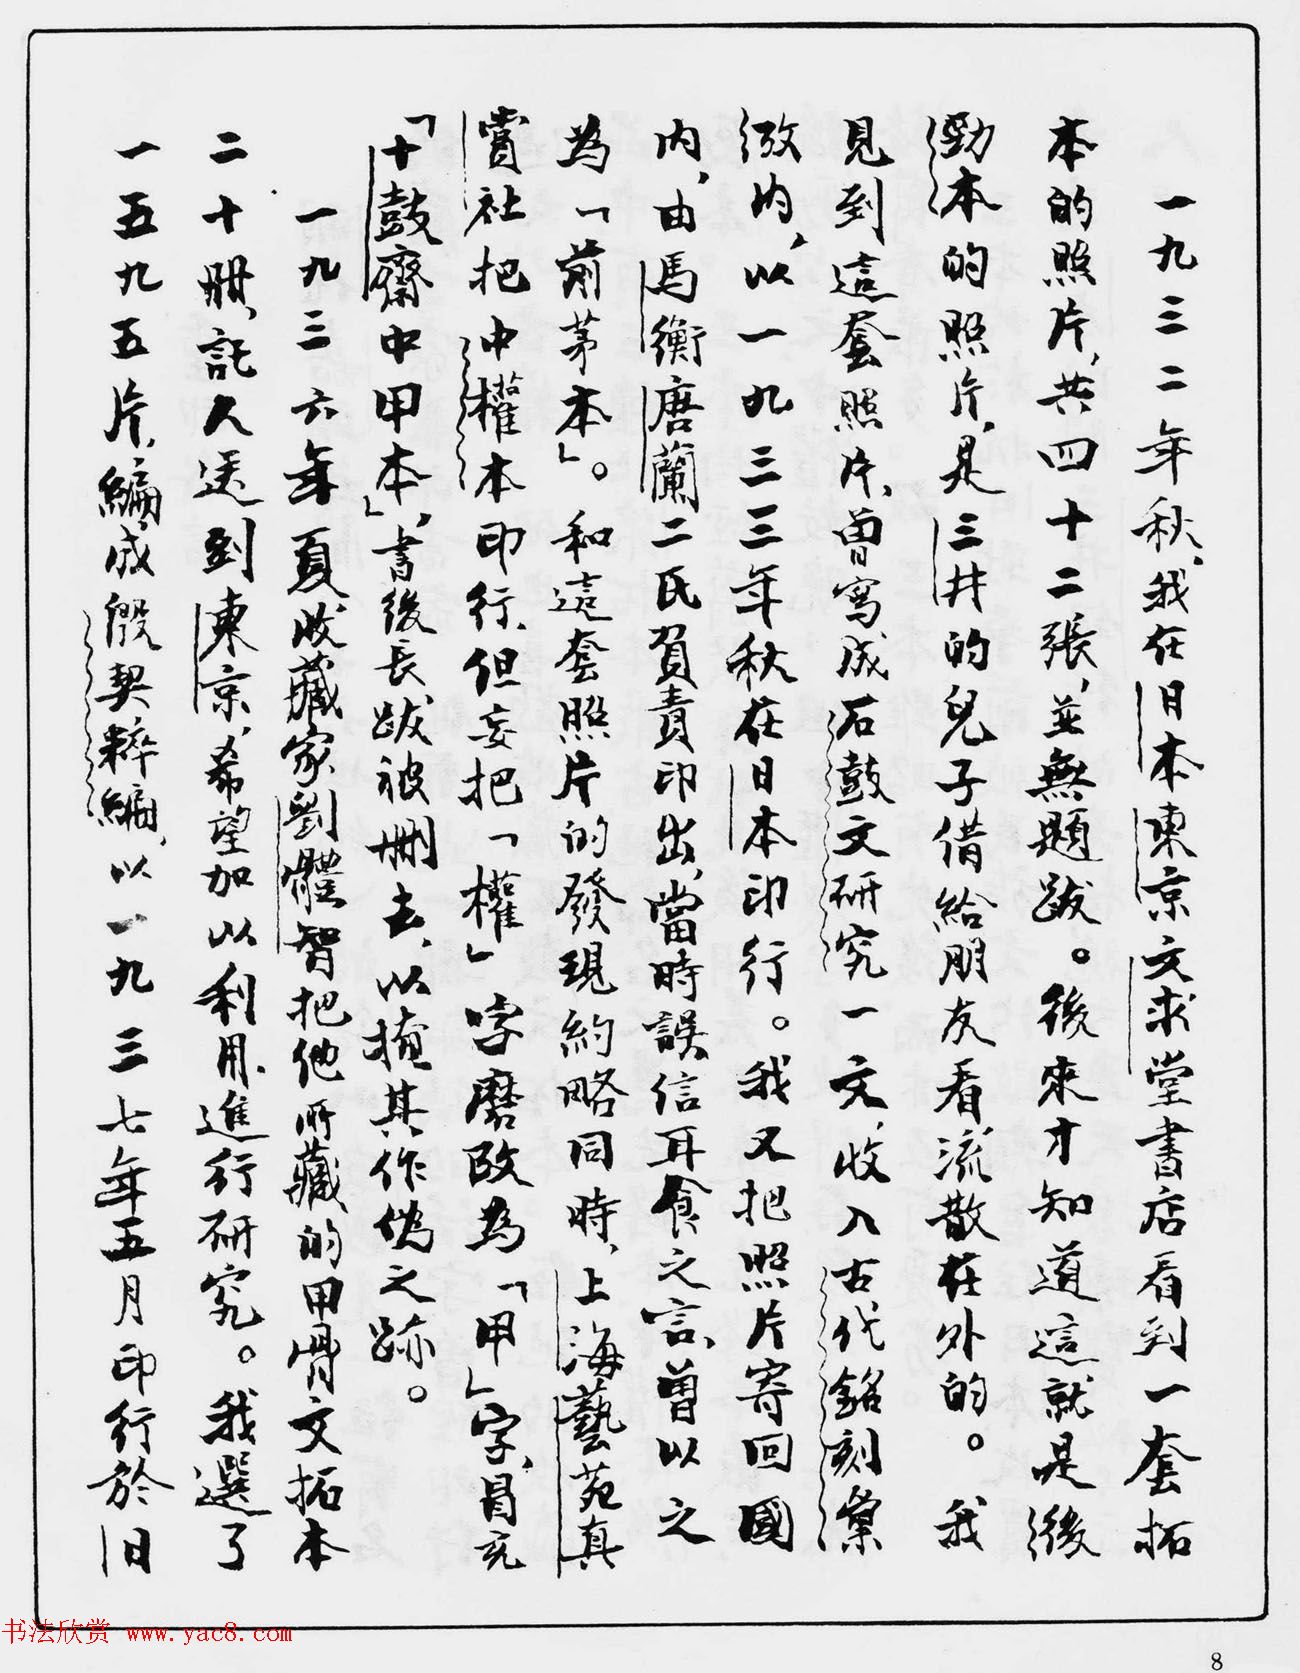 一九三二年秋、我在日本東京文求堂書店看到一套拓
本的照片，共四十二張，並無題跋。後來才知道這就是後
勁本的照片，是三井的兒子借給朋友看，流散在外的。我
見到這套照片，曾寫成石鼓文研究一文，收入古代銘刻彙
攷內，以一九三三年秋在日本印行。我又把照片寄回國
內，由馬衡唐蘭二氏負責印出，當時誤信耳食之言，曾以之
為「前茅本」。和這套照片的發現約略同時，上海藝苑真
賞社把中權本印行，但妄把「權」字磨改為「甲」字，冒充
「十鼓齋中甲本」，書後長跋被刪去，以掩其作偽之跡。
一九三六年夏，收藏家劉體智把他所藏的甲骨文拓本
二十冊，託人送到東京，希望加以利用，進行研究。我選了
一五九五片，編成殷契粹編，以一九三七年五月印行於日
书法欣赏 www.yac8.com
8